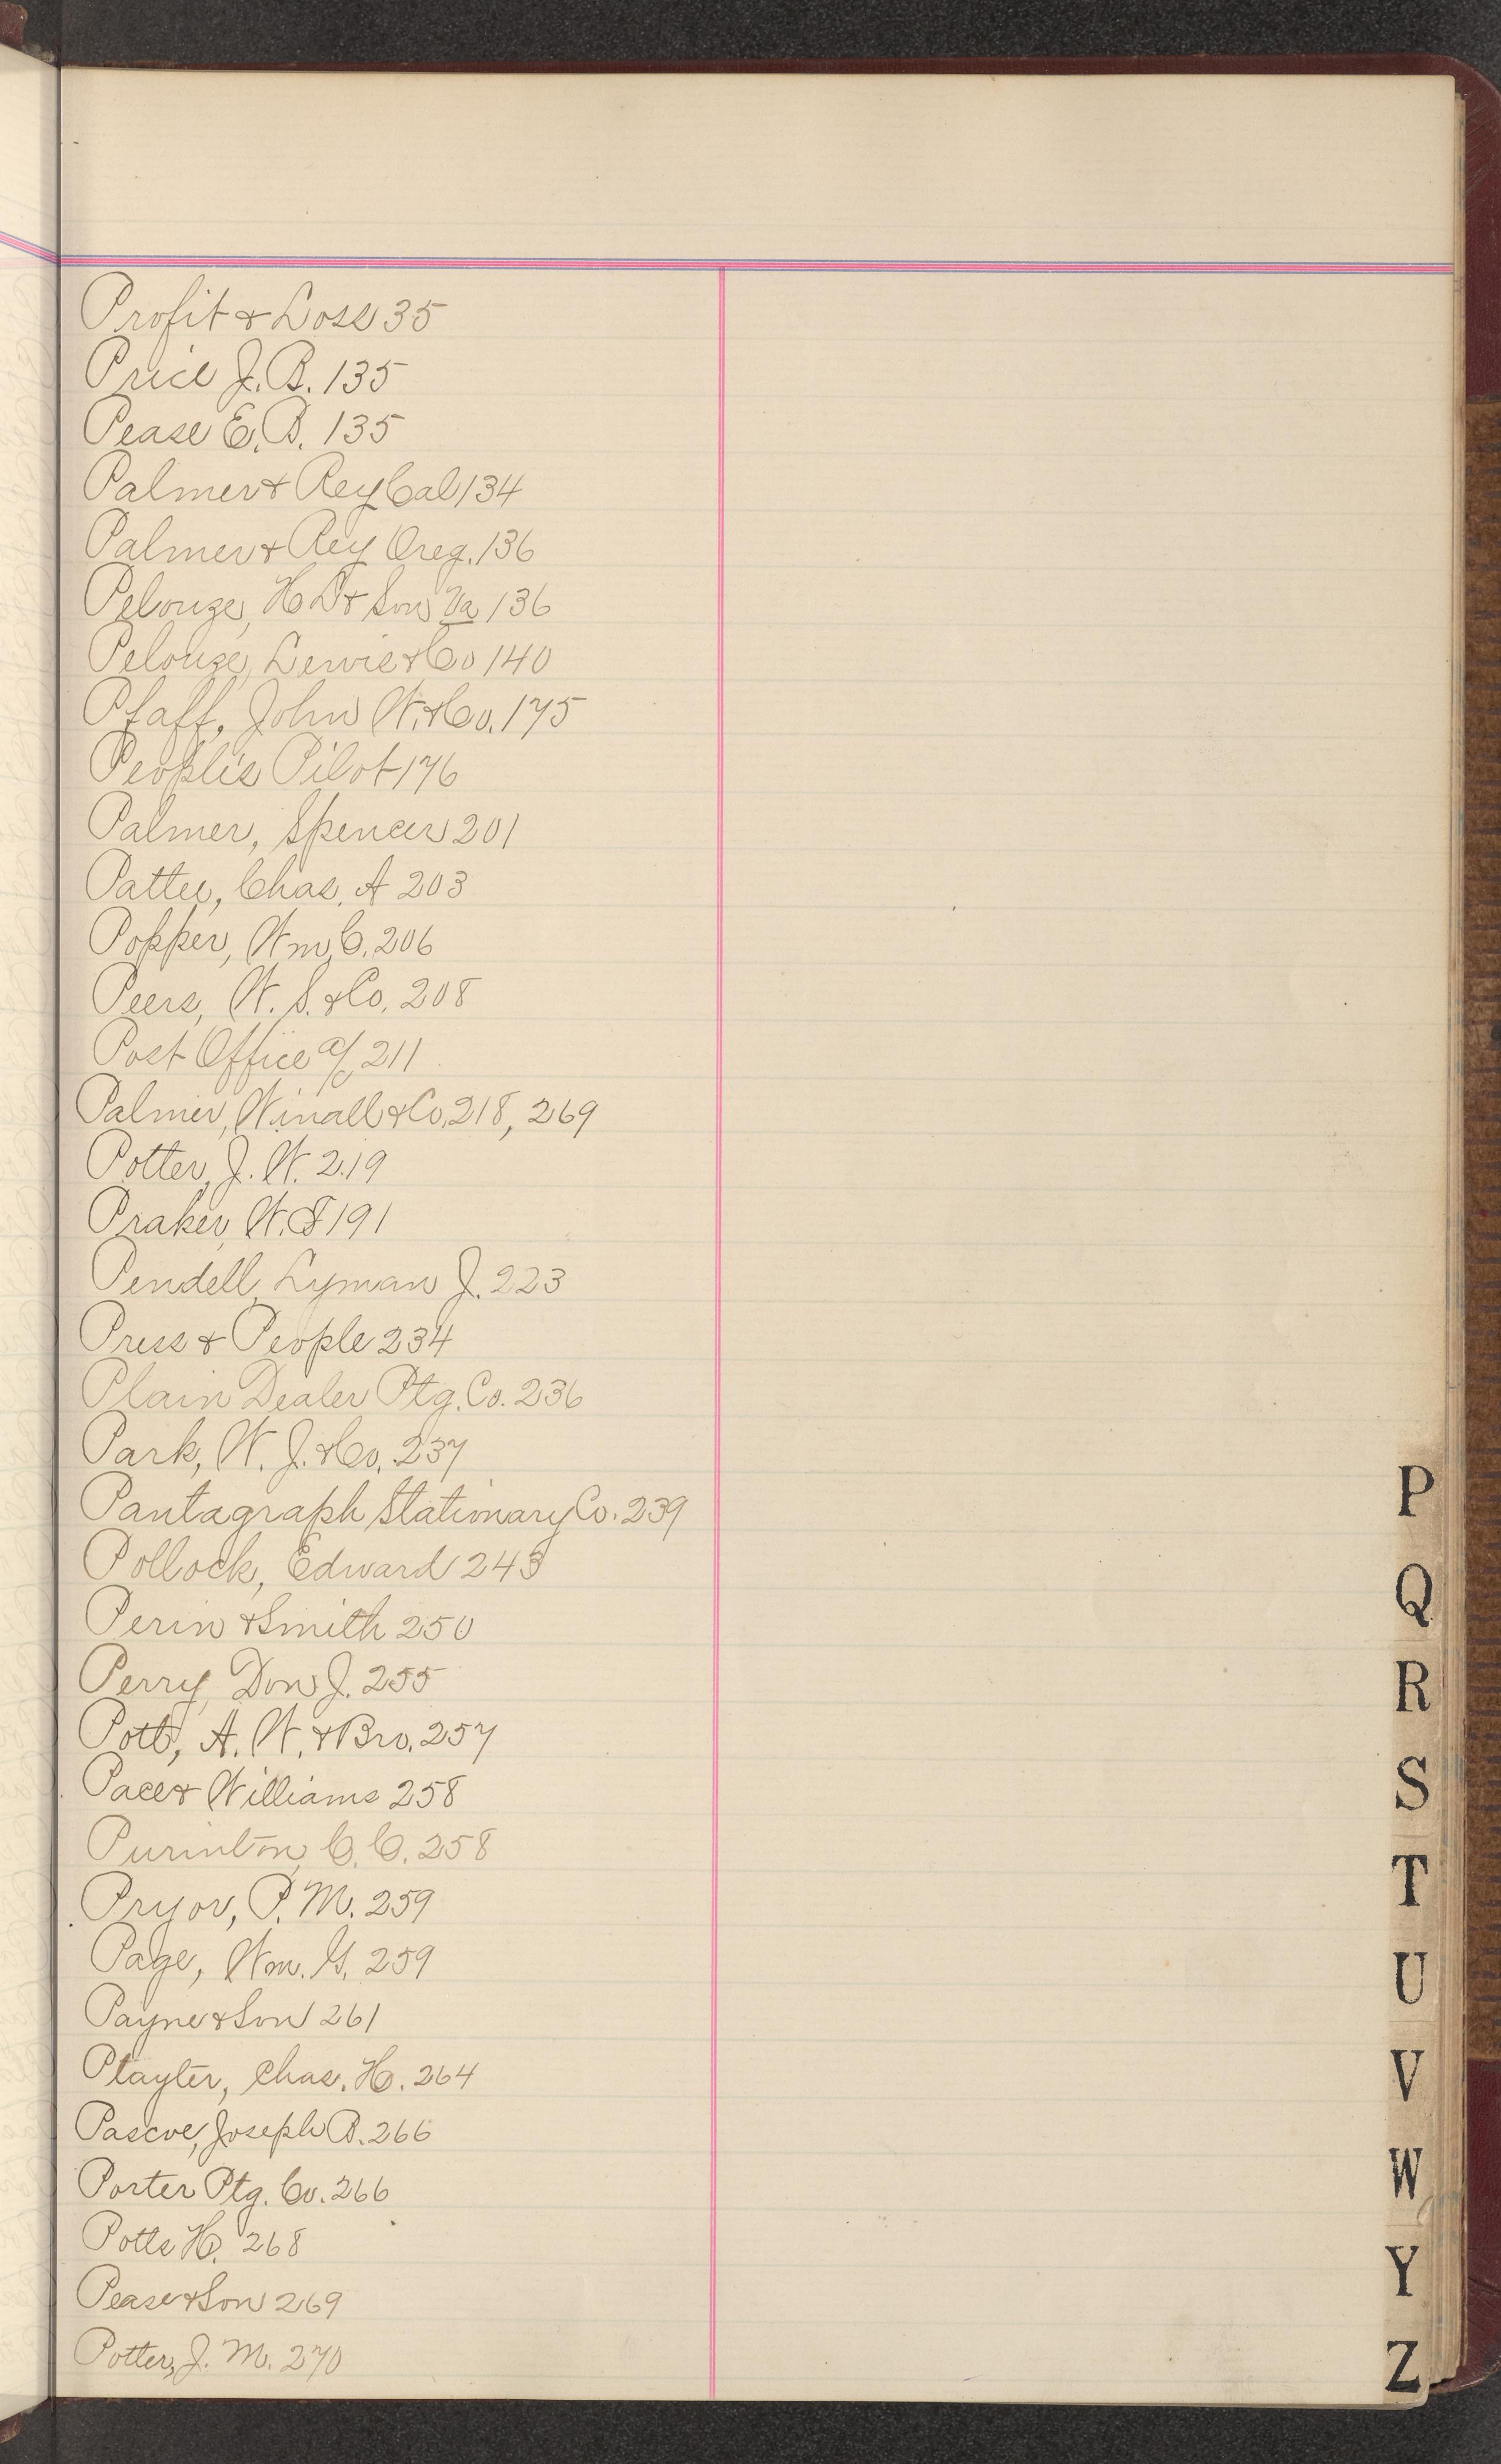 Profit & Loss 35
Price J. B. 135
Pease E. B. 135
Palmer & Rey Cal 134
Palmer & Rey Oreg. 136
Pelouze, H L & Son Va 136
Pelouze, Lewis & Co 140
Pfaff, John W. & Co. 175
People's Pilot 176
Palmer, Spencer 201
Pattee, Chas. A 203
Popper, Wm C. 206
Peers, W. S. & Co. 208
Post Office a/c 211
Palmer, Winall & Co. 218, 269
Potter, J. W. 219
Praker, W. F 191
Pendell, Lyman J. 223
Press & People 234
Plain Dealer Ptg. Co. 236
Park, W. J. & Co. 237
Pantagraph Stationary Co. 239
Pollock, Edward 243
Perin & Smith 250
Perry, Don J. 255
Pott, A. W. & Bro. 257
Pace & Williams 258
Purinton, C. C. 258
Pryor, P. M. 259
Page, Wm. G. 259
Payne & Son 261
Playter, Chas. H. 264
Pascoe, Joseph B. 266
Porter Ptg. Co. 266
Potts H. 268
Pease & Son 269
Potter, J. M. 270
P
Q
R
S
T
U
V
W
Y
Z